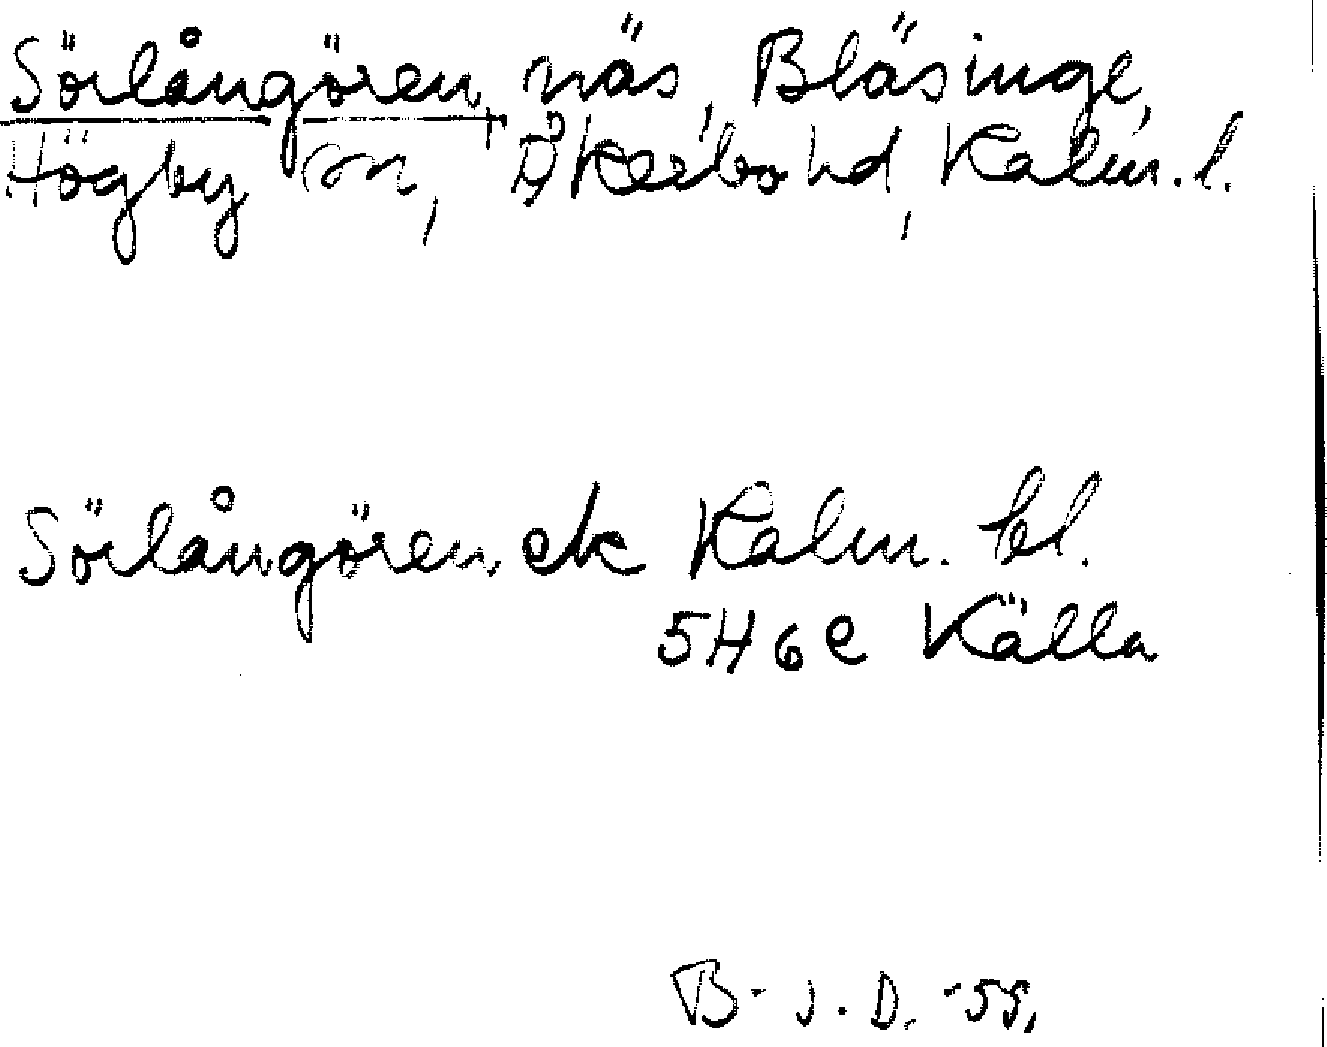 Sörlångören, näs, Bläsinge,
Högby sn, Åkerbo hd, Kalm. l.
Sörlångören ek Kalm. bl.
5H6e Källa
B-J.D. -55.